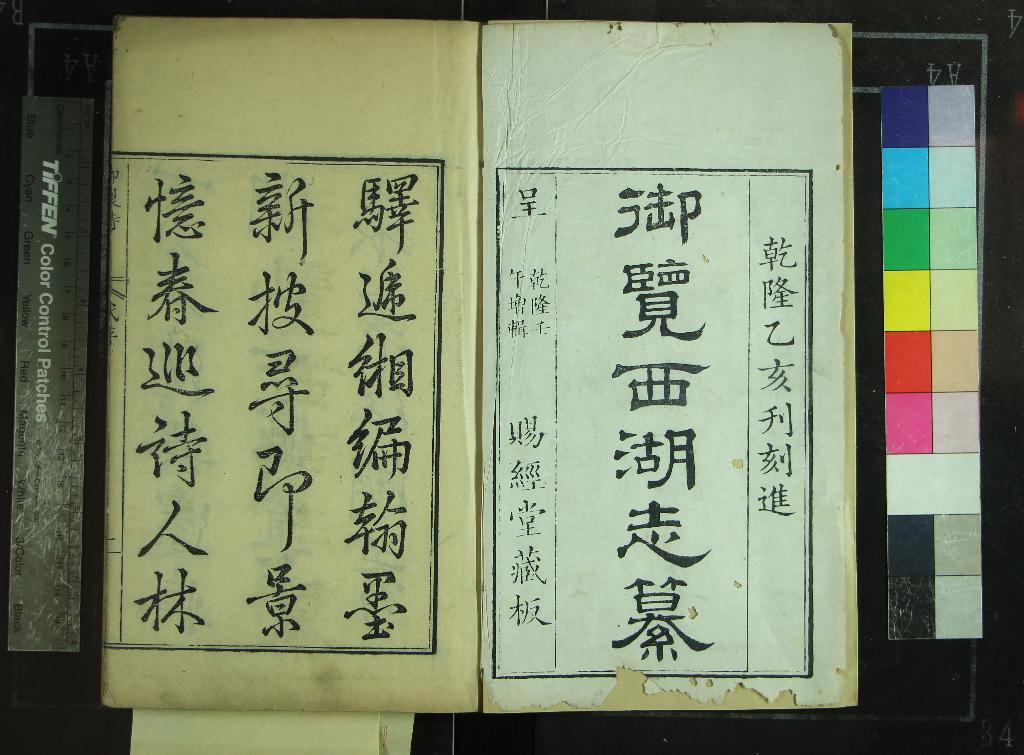 乾隆乙亥刊刻進
御覽西湖志纂
呈 乾隆壬午增輯 賜經堂藏板
驛遞緗編翰墨
新披尋即景
憶春巡詩人林
TIFFEN Color Control Patches
Blue
Cyan
Green
Yellow
Red
Magenta
White
3/Color
Black
A4
A4
B4